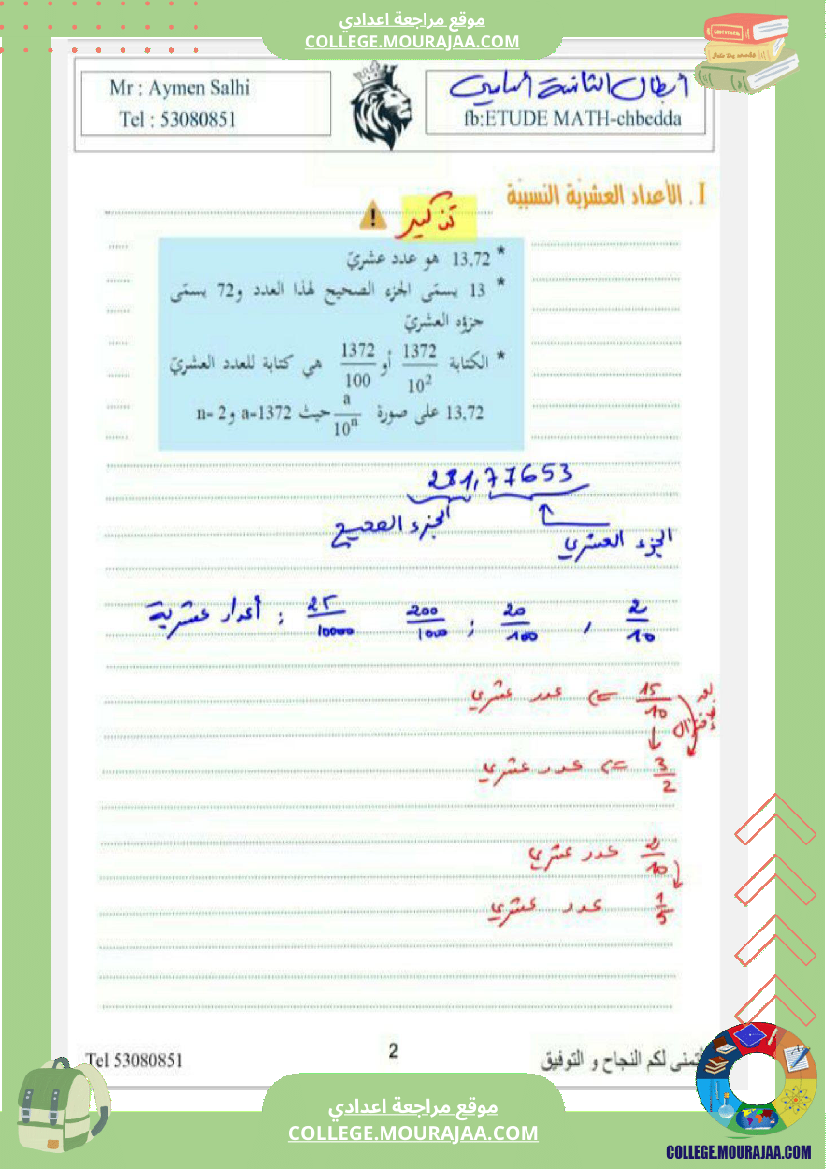 موقع مراجعة اعدادي
COLLEGE.MOURAJAA.COM
Mr : Aymen Salhi
Tel : 53080851
أبطال الثانية أساسي
fb:ETUDE MATH-chbedda
I. الأعداد العشريّة النسبيّة
تذكير
* 13,72 هو عدد عشريّ
* 13 يسمّى الجزء الصحيح لهذا العدد و72 يسمّى
جزؤه العشريّ
* الكتابة 1372/10² أو 1372/100 هي كتابة للعدد العشريّ
13,72 على صورة a/10ⁿ حيث a=1372 و n= 2
231,77653
الجزء الصحيح
الجزء العشري
2/10 , 20/100 ; 200/1000 25/10000 : أعداد عشرية
15/10 => عدد عشري
بعد الاختزال
3/2 => عدد عشري
2/10 عدد عشري
1/5 عدد عشري
Tel 53080851
2
أتمنى لكم النجاح و التوفيق
موقع مراجعة اعدادي
COLLEGE.MOURAJAA.COM
COLLEGE.MOURAJAA.COM